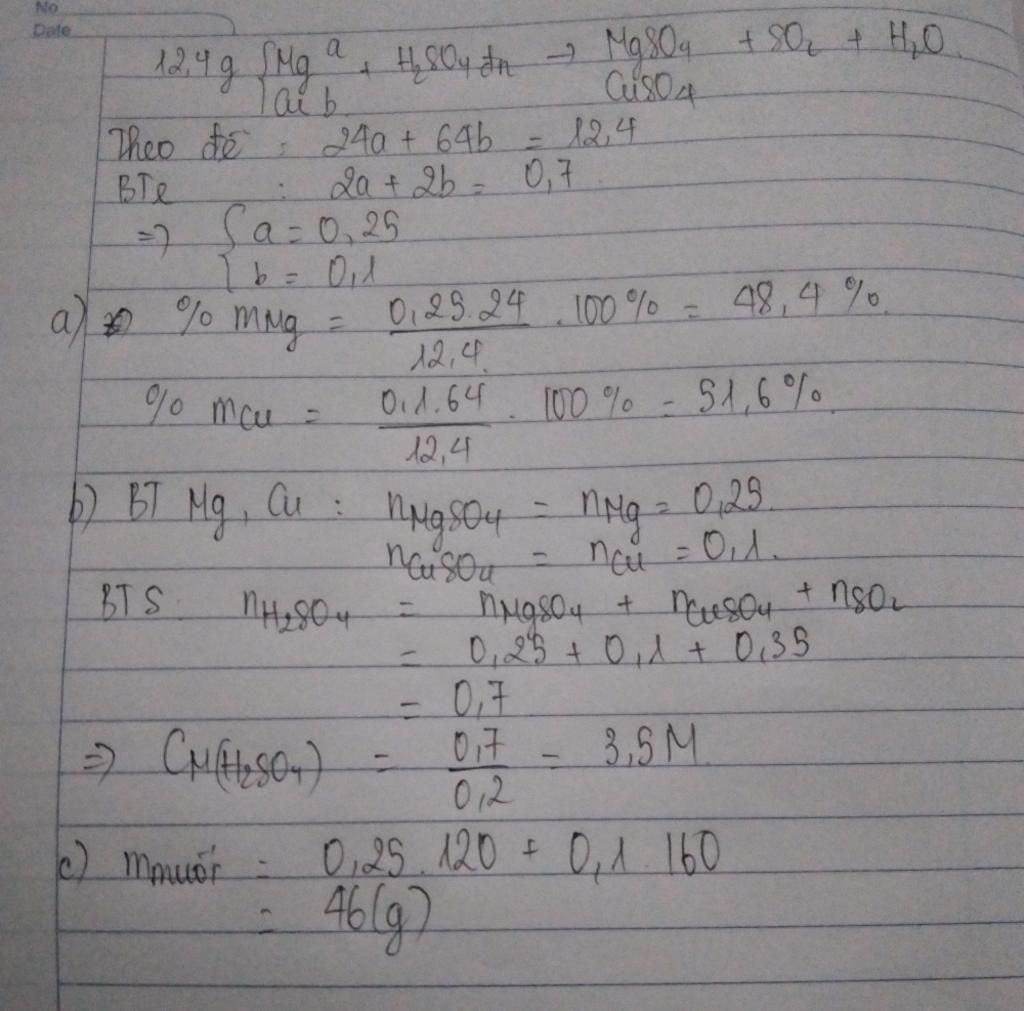 No
Date
12,4g { Mg a + H₂SO₄ đn → MgSO₄ + SO₂ + H₂O
Cu b CuSO₄
Theo đề : 24a + 64b = 12,4
BTe : 2a + 2b = 0,7
=> { a = 0,25
b = 0,1
a) % mMg = 0,25.24 / 12,4 . 100% = 48,4%.
% mCu = 0,1.64 / 12,4 . 100% = 51,6%.
b) BT Mg, Cu : nMgSO₄ = nMg = 0,25.
nCuSO₄ = nCu = 0,1.
BT S nH₂SO₄ = nMgSO₄ + nCuSO₄ + nSO₂
= 0,25 + 0,1 + 0,35
= 0,7
=> CM(H₂SO₄) = 0,7 / 0,2 = 3,5M
c) mmuối = 0,25.120 + 0,1.160
= 46(g)